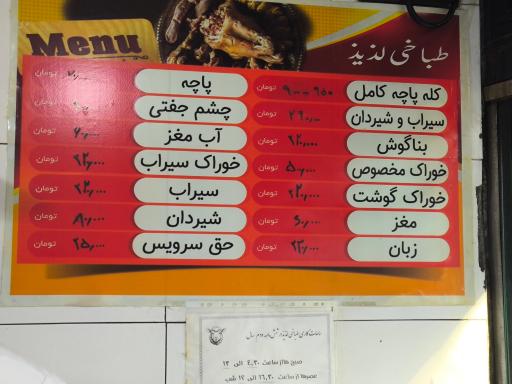 Menu
طباخی لذیذ
کله پاچه کامل ۹۰۰-۹۵۰ تومان
سیراب و شیردان ۲۹۰,۰۰۰ تومان
بناگوش ۱۲۰,۰۰۰ تومان
خوراک مخصوص تومان
خوراک گوشت تومان
مغز ۶۰,۰۰۰ تومان
زبان تومان
پاچه تومان
چشم جفتی تومان
آب مغز ۶۰,۰۰۰ تومان
خوراک سیراب ۱۲۰,۰۰۰ تومان
سیراب ۱۲۰,۰۰۰ تومان
شیردان ۸۰,۰۰۰ تومان
حق سرویس ۲۵,۰۰۰ تومان
ساعات کاری طباخی لذیذ در شش ماهه دوم سال
صبح ها از ساعت ۴,۳۰ الی ۱۳
عصرها از ساعت ۱۶,۳۰ الی ۱۲ شب